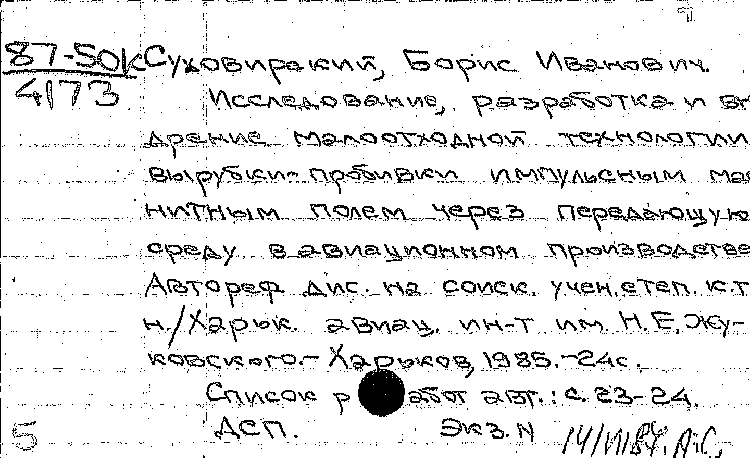 87-50к Суховиракий, Борис Иванович.
4173 Исследование, разработка и вн
дрение малоотходной технологии
вырубки-пробивки импульсным маг
нитным полем через передающую
среду в авиационном производстве
Автореф дис. на соиск. учен. степ. к.т
н./Харьк. авиац. ин-т им. Н.Е. Жу-
ковского.- Харьков, 1985.-24с.
Список р абот авт.: с. 23-24.
5 ДСП. Экз. N